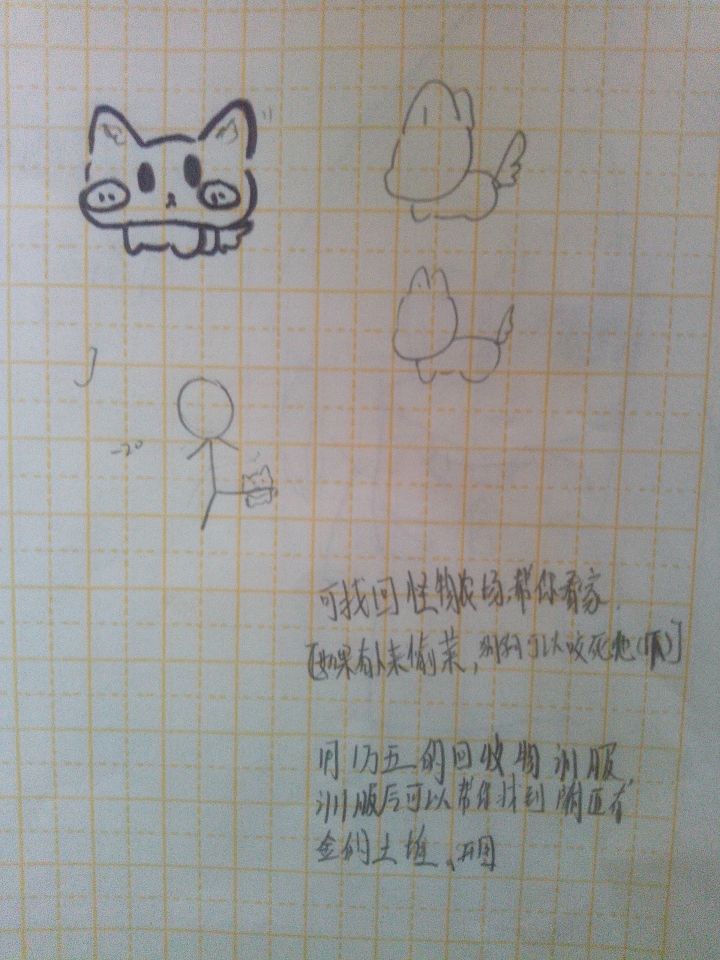 -20
可找回怪物农场帮你看家.
[如果有人来偷菜,刚好可以咬死他()]
用1万五的回收物训服,
训服后可以帮你找到附近有
金的土堆、